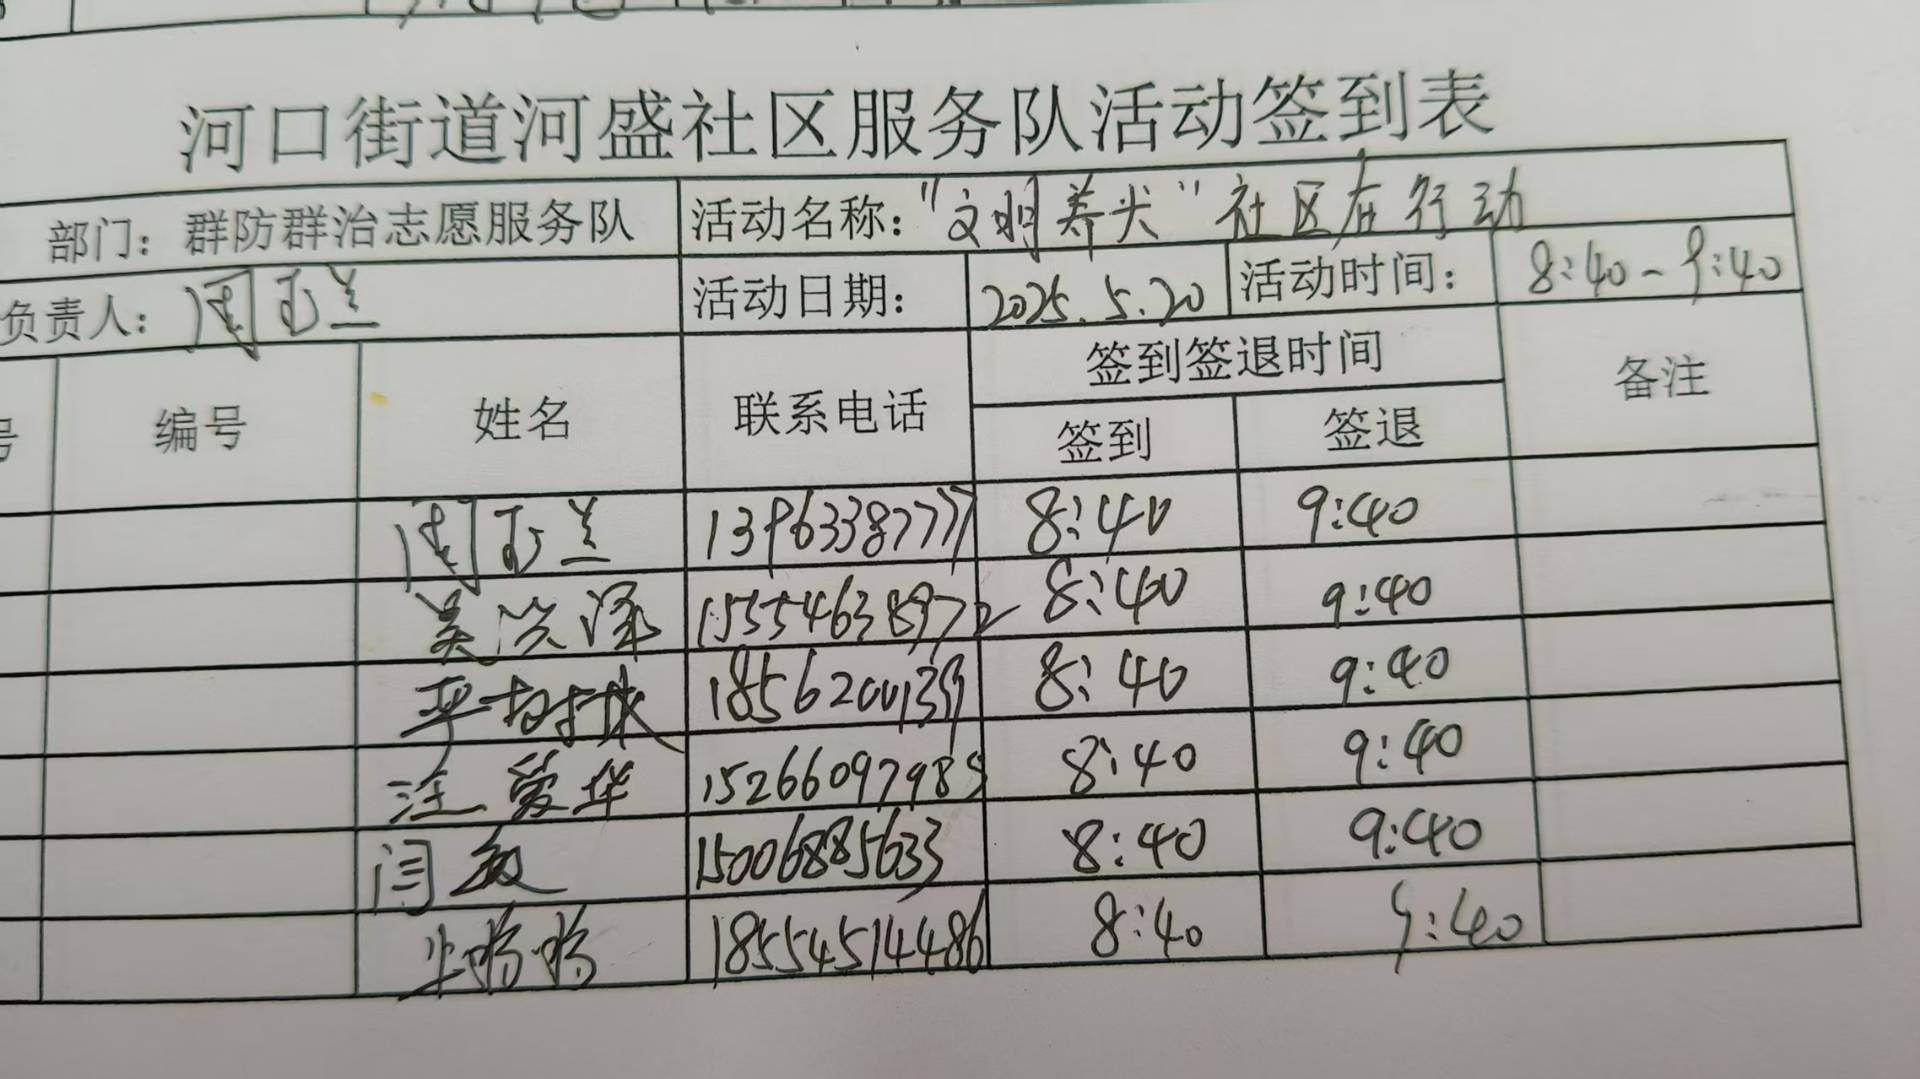 河口街道河盛社区服务队活动签到表
部门：群防群治志愿服务队 活动名称：“文明养犬”社区在行动
负责人：周玉兰 活动日期：2025.5.20 活动时间：8:40-9:40
号 编号 姓名 联系电话 签到签退时间 备注
签到 签退
周玉兰 13963387777 8:40 9:40
吴洪泽 15554638972 8:40 9:40
8:40 9:40
汪爱华 15266097985 8:40 9:40
闫敏 15006885633 8:40 9:40
18554514486 8:40 9:40